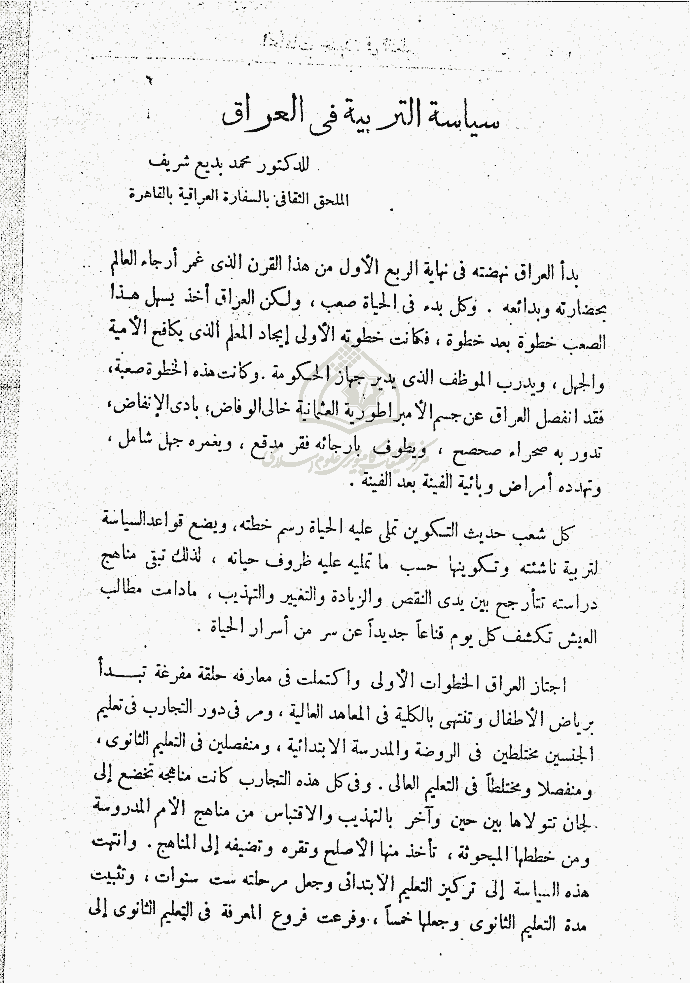 ٦
سياسة التربية في العراق
للدكتور محمد بديع شريف
الملحق الثقافي بالسفارة العراقية بالقاهرة
بدأ العراق نهضته فى نهاية الربع الأول من هذا القرن الذى غمر أرجاء العالم
بحضارته وبدائعه . وكل بدء فى الحياة صعب ، ولكن العراق أخذ يسهل هذا
الصعب خطوة بعد خطوة ، فكانت خطوته الأولى إيجاد المعلم الذى يكافح الأمية
والجهل ، ويدرب الموظف الذى يدير جهاز الحكومة . وكانت هذه الخطوة صعبة ،
فقد انفصل العراق عن جسم الأمبراطورية العثمانية خالى الوفاض ؛ بادى الإنفاض ،
تدور به صحراء صحصح ، ويطوف بأرجائه فقر مدقع ، ويغمره جهل شامل ،
وتهدده أمراض وبائية الفينة بعد الفينة .
كل شعب حديث التكوين تملى عليه الحياة رسم خطته ، ويضع قواعد السياسة
لتربية ناشئته وتكوينها حسب ما تمليه عليه ظروف حياته ، لذلك تبقى مناهج
دراسته تتأرجح بين يدى النقص والزيادة والتغيير والتهذيب ، مادامت مطالب
العيش تكشف كل يوم قناعاً جديداً عن سر من أسرار الحياة .
اجتاز العراق الخطوات الأولى واكتملت فى معارفه حلقة مفرغة تبــدأ
برياض الأطفال وتنتهى بالكلية فى المعاهد العالية ، ومر فى دور التجارب فى تعليم
الجنسين مختلطين فى الروضة والمدرسة الابتدائية ، ومنفصلين فى التعليم الثانوى ،
ومنفصلا ومختلطاً فى التعليم العالى . وفى كل هذه التجارب كانت مناهجه تخضع إلى
لجان تتولاها بين حين وآخر بالتهذيب والاقتباس من مناهج الأمم المدروسة
ومن خططها المبحوثة ، تأخذ منها الأصلح وتقره وتضيفه إلى المناهج . وانتهت
هذه السياسة إلى تركيز التعليم الابتدائى وجعل مرحلته ست سنوات ، وتثبيت
مدة التعليم الثانوى وجعلها خمساً ، وفرعت فروع المعرفة فى التعليم الثانوى إلى